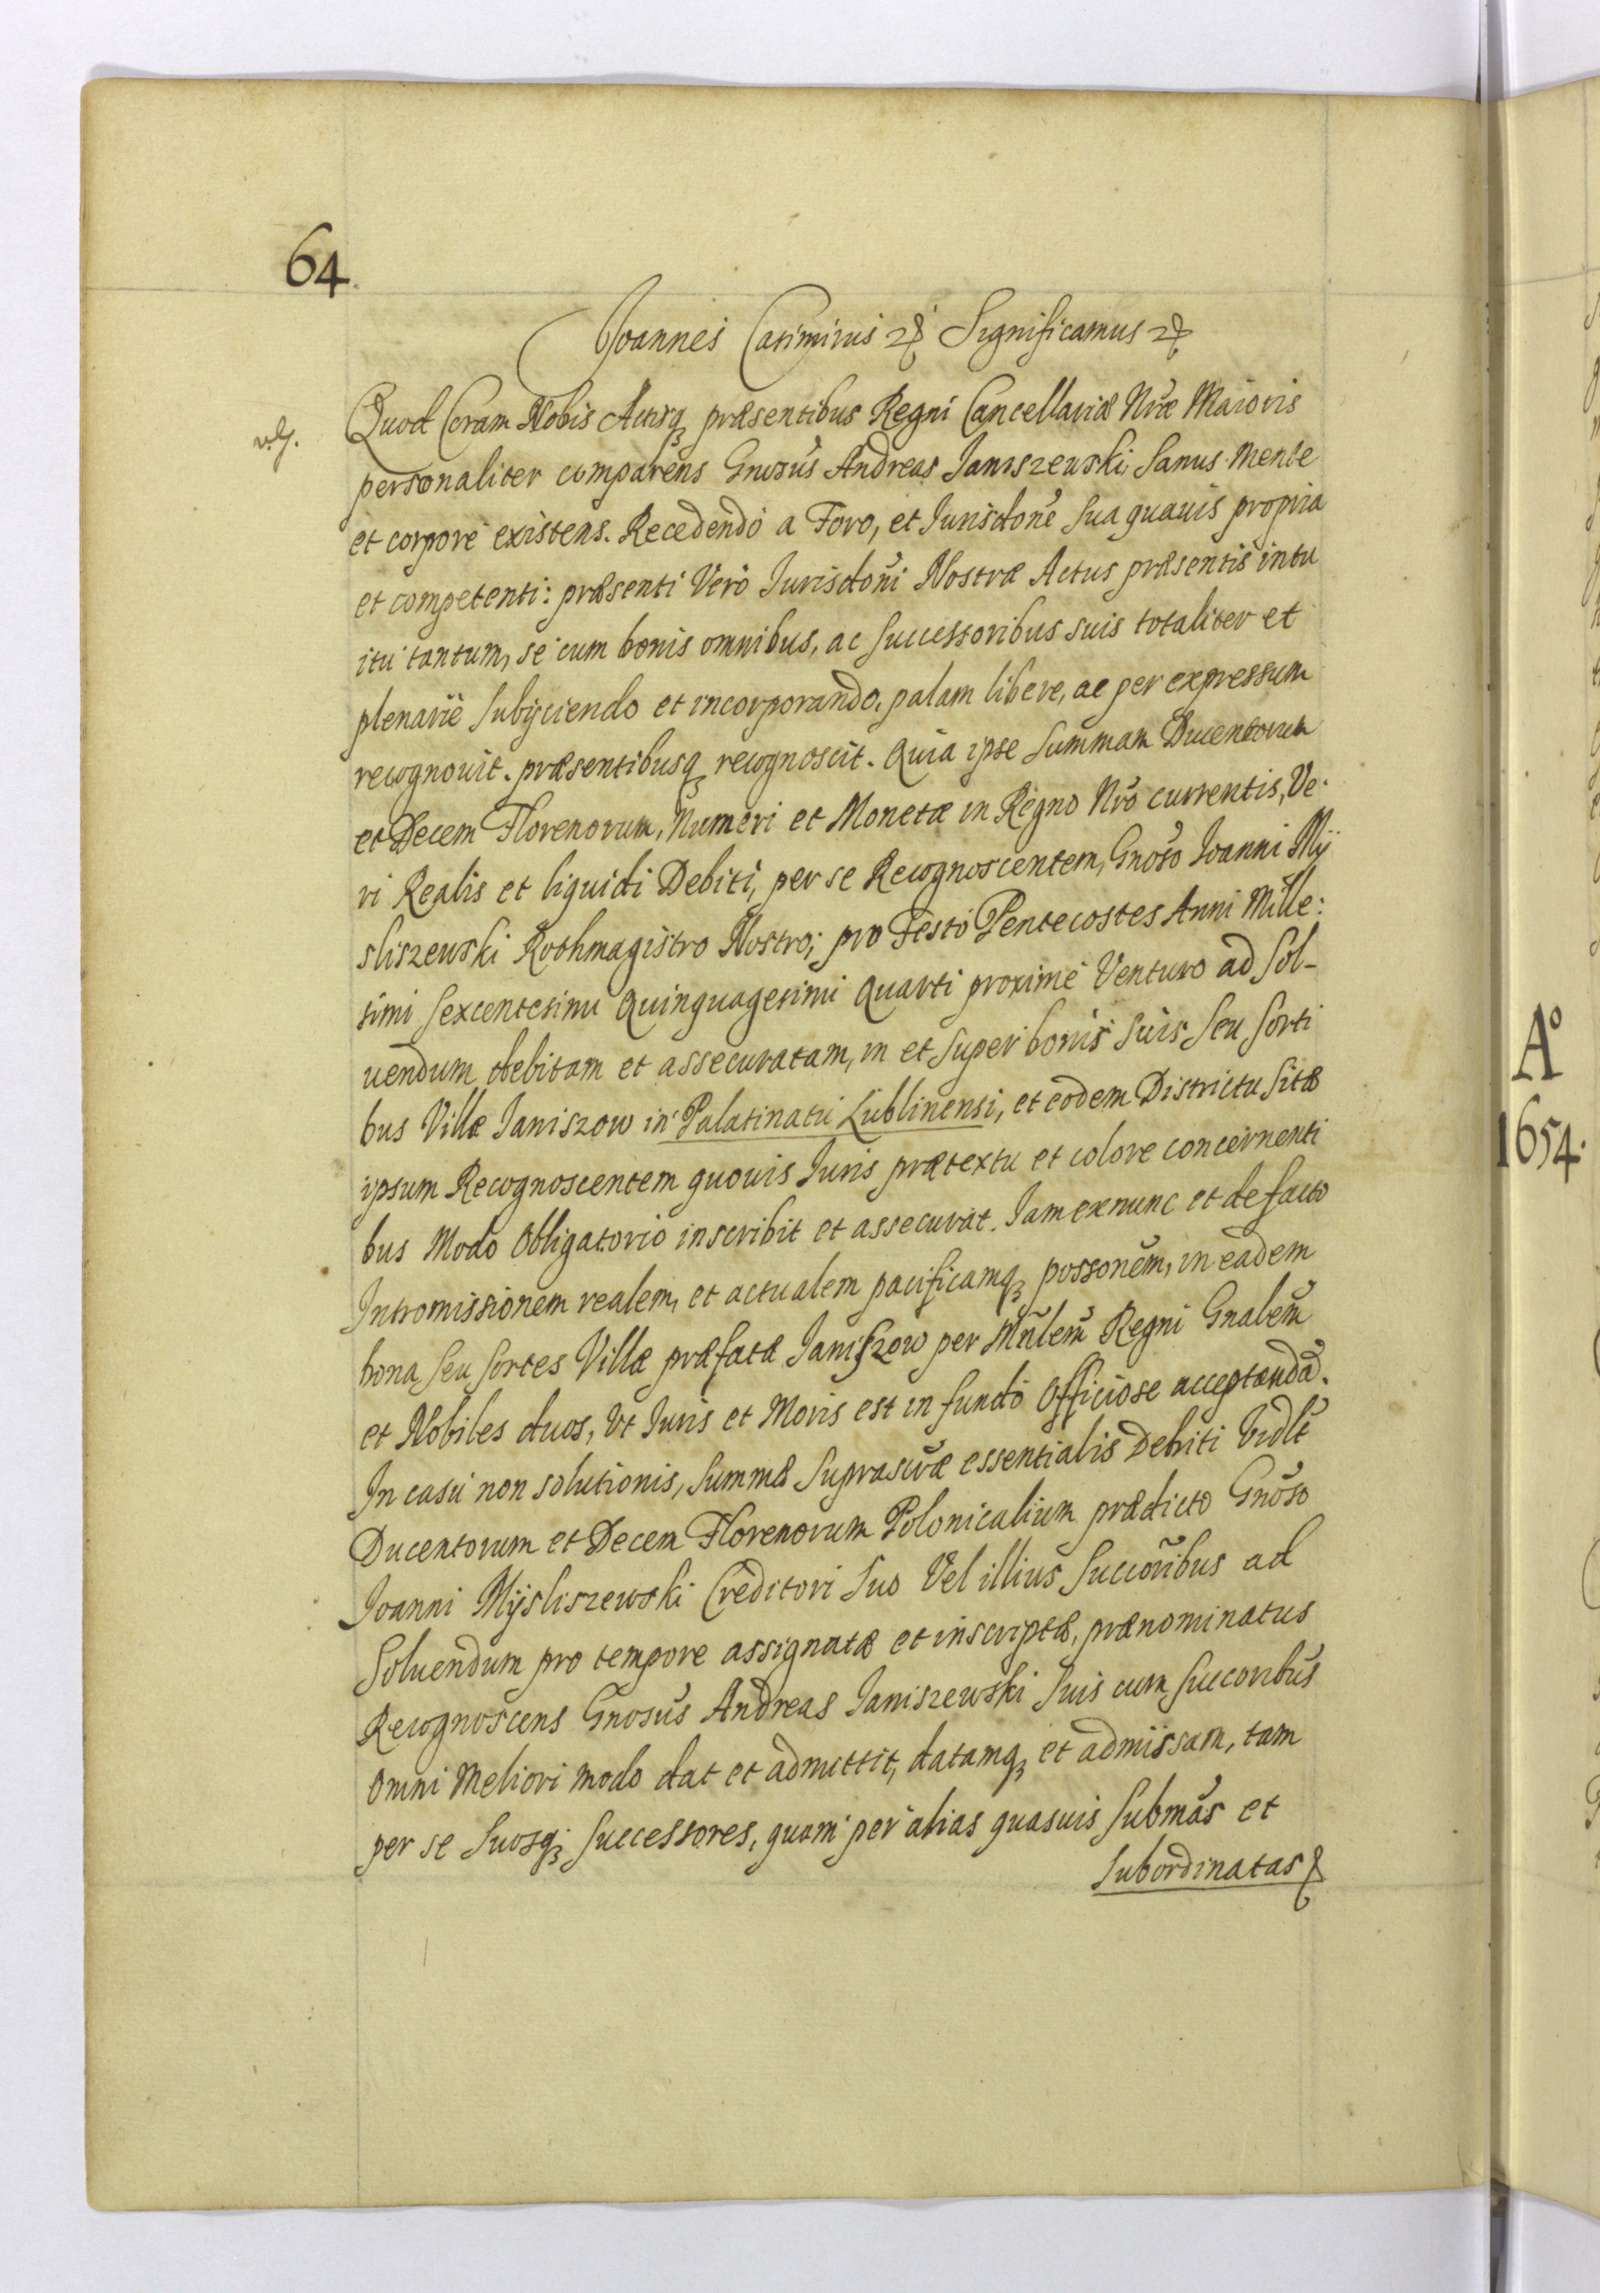 64.
Joannes Casimirus Significamus
Quod Coram Nobis Actisq præsentibus Regni Cancellariæ Nræ Maioris
personaliter comparens Gnosus Andreas Janiszewski, Sanus Mente
et corpore existens. Recedendo a Foro, et Jurisdone sua quauis propria
et competenti: præsenti Vero Jurisdoni Nostræ Actus præsentis intu
itu tantum, se cum bonis omnibus, ac Successoribus suis totaliter et
plenarie Subijciendo et incorporando, palam libere, ac per expressum
recognouit. præsentibusq recognoscit. Quia ipse Summam Ducentorum
et Decem Florenorum, Numeri et Monetæ in Regno Nro currentis, Ve.
ri Realis et liquidi Debiti, per se Recognoscentem, Gnoso Joanni Mÿ
sliszewski Rothmagistro Nostro, pro Festo Pentecostes Anni Mille:
simi Sexcentesimi Quinquagesimi Quarti proxime Venturo ad Sol-
uendum debitam et assecuratam, in et Super bonis suis Seu Sorti
bus Villæ Janiszow in Palatinatu Lublinensi, et eodem Districtu Sitæ
ipsum Recognoscentem quouis Juris prætextu et colore concernenti
bus Modo Obligatorio inscribit et assecurat. Jam exnunc et defacto
Intromissionem realem, et actualem pacificamq possonem, in eadem
bona Seu Sortes Villæ præfatæ Janiszow per Mnlem Regni Gnalem
et Nobiles duos, Vt Juris et Moris est in fundo Officiose acceptanda.
In casu non solutionis, Summæ Suprascræ essentialis Debiti Vidlt
Ducentorum et Decem Florenorum Polonicalium prædicto Gnoso
Joanni Mÿsliszewski Creditori Suo Vel illius Succoribus ad
Soluendum pro tempore assignatæ et inscriptæ, prænominatus
Recognoscens Gnosus Andreas Janiszewski Suis cum Succoribus
omni Meliori modo dat et admittit, datamq et admissam, tam
per se Suosq Successores, quam per alias quasuis Submas et
Subordinatas
Aº
1654.